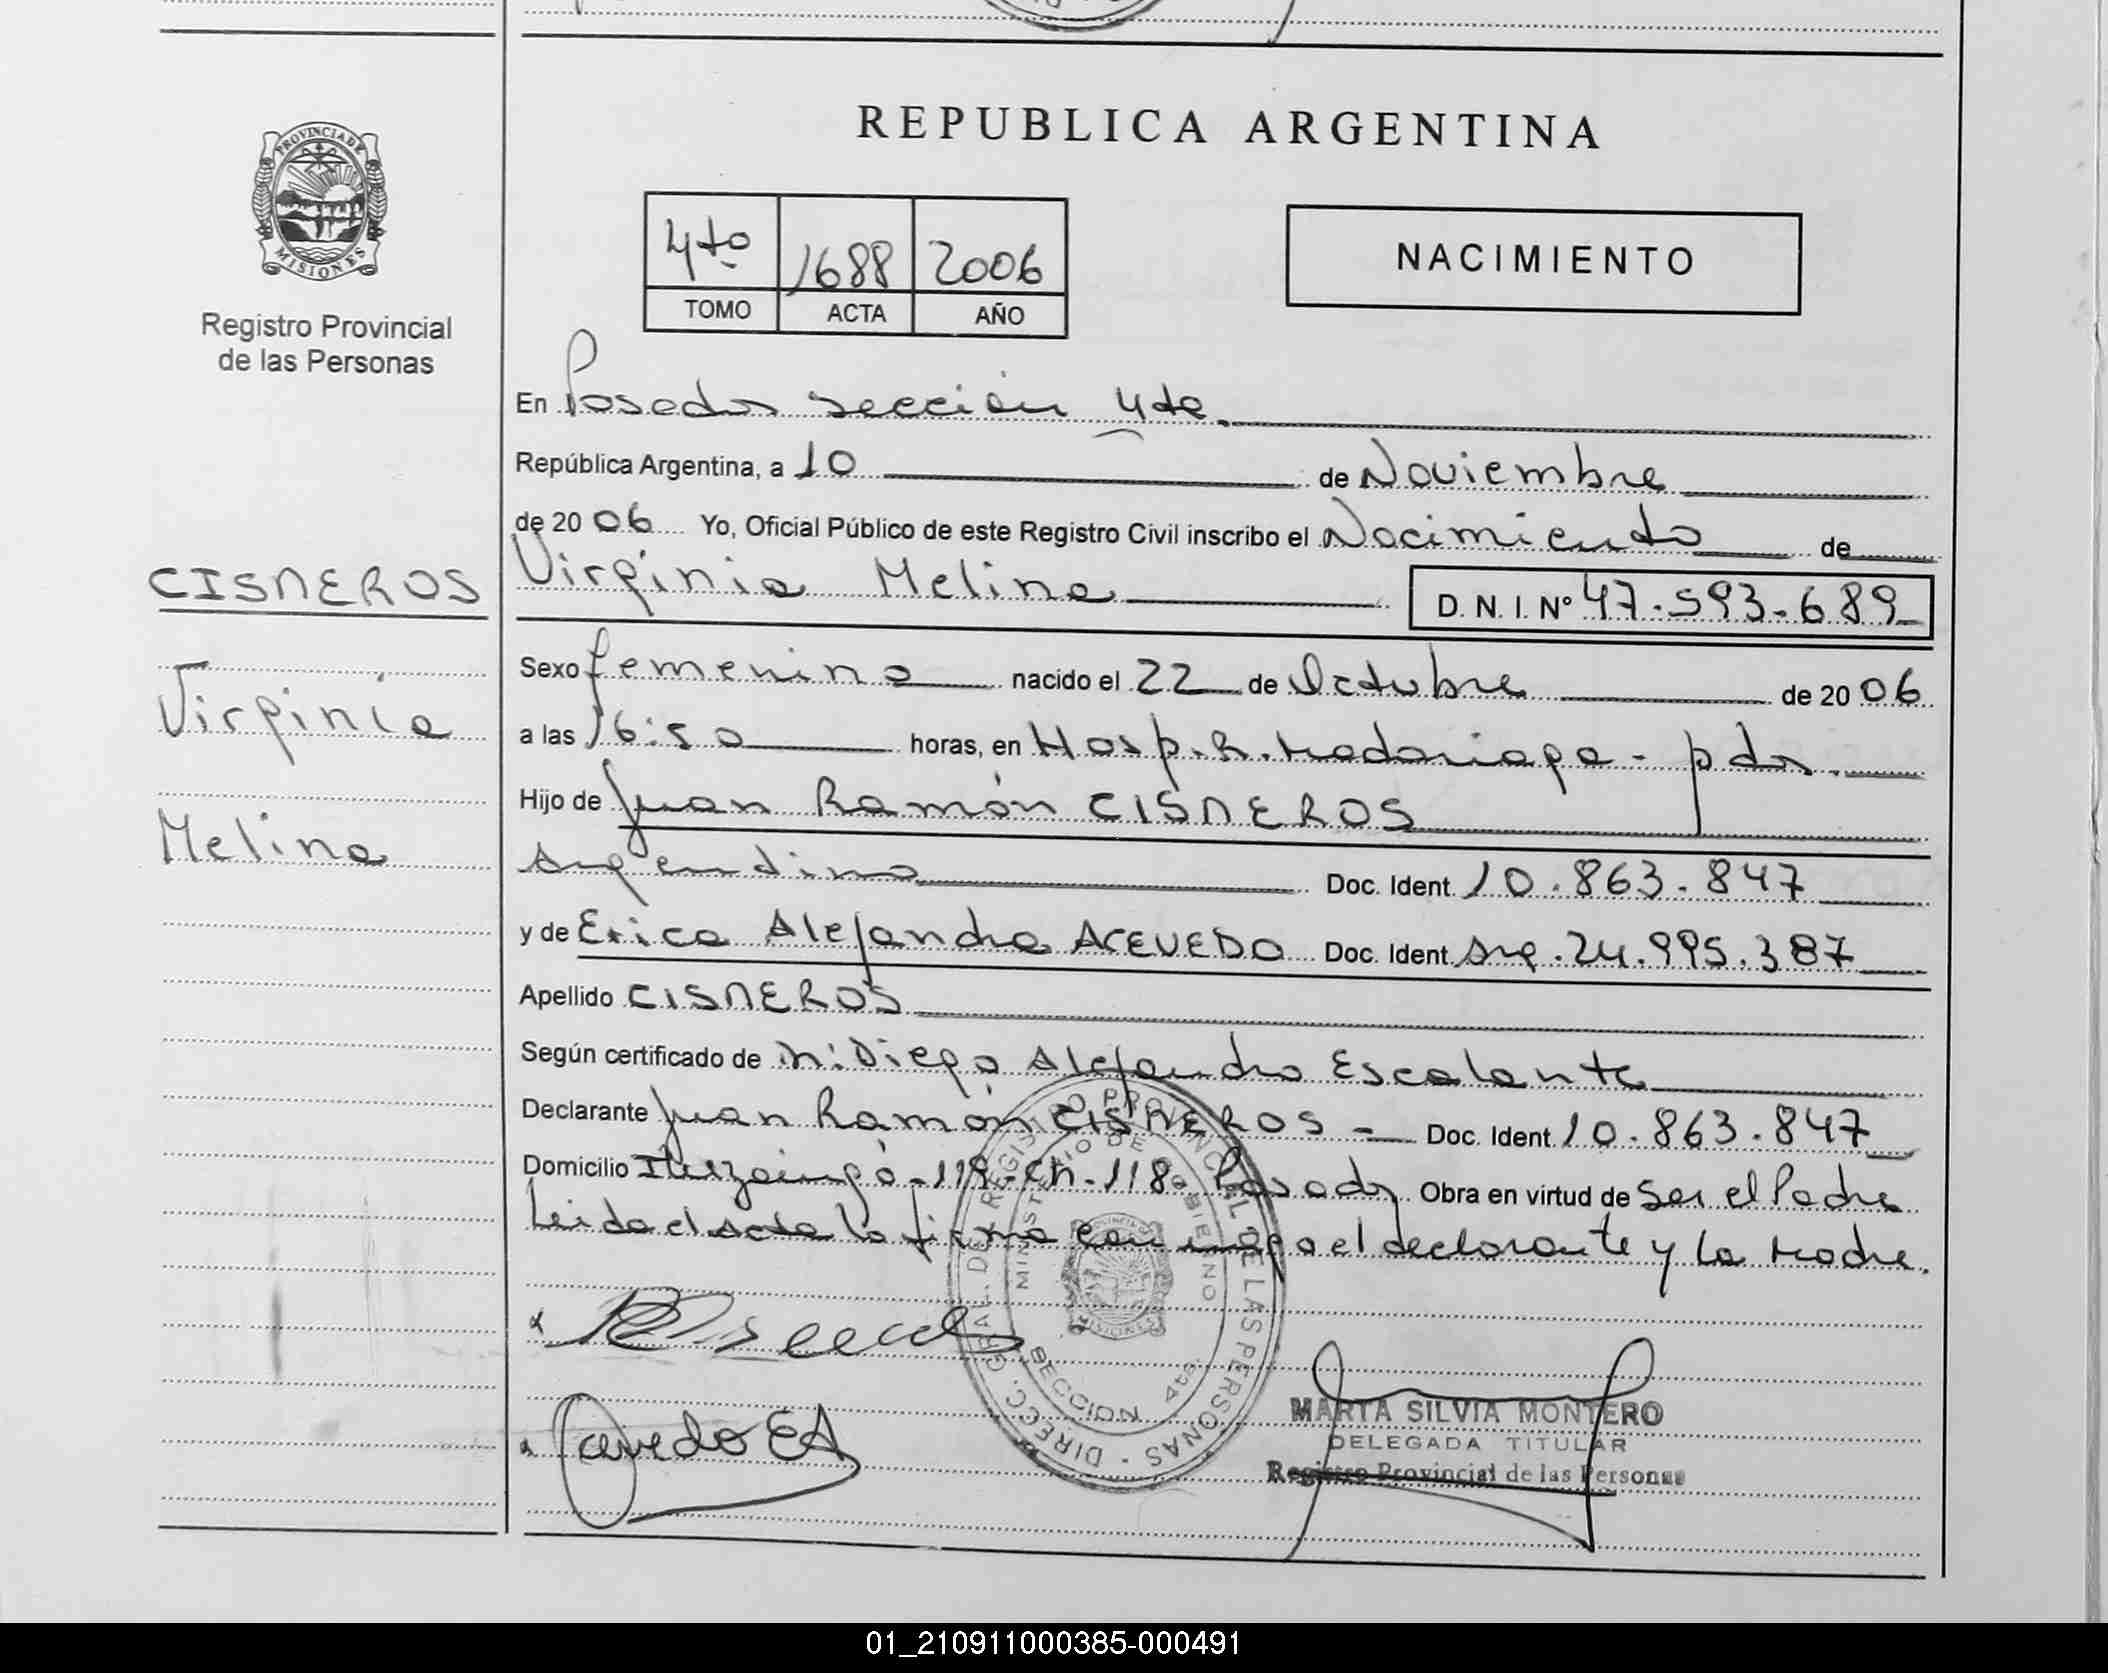 REPUBLICA ARGENTINA
PROVINCIA DE
MISIONES
Registro Provincial
de las Personas
4to 1688 2006
TOMO ACTA AÑO
NACIMIENTO
En Posadas sección 4ta.
República Argentina, a 10 de Noviembre
de 2006 Yo, Oficial Público de este Registro Civil inscribo el Nacimiento de
CISNEROS
Virginia Melina D. N. I. Nº 47.593.689
Sexo femenino nacido el 22 de Octubre de 2006
Virginia
a las 16:50 horas, en Hosp. R. Madariaga - pdas.
Hijo de Juan Ramón CISNEROS
Melina
Argentino Doc. Ident. 10.863.847
y de Erica Alejandra ACEVEDO Doc. Ident. Arg. 24.995.387
Apellido CISNEROS
Según certificado de Diego Alejandro Escalante
Declarante Juan Ramón CISNEROS - Doc. Ident. 10.863.847
Domicilio Ituzaingó - 119 - Ch. 118 Posadas Obra en virtud de Ser el Padre
Leida el acta la firma conmigo el declarante y la Madre.
DIRECC. GRAL. DEL REGISTRO PROVINCIAL DE LAS PERSONAS
MINISTERIO DE GOBIERNO
MISIONES
SECCION 4ta.
Acevedo EA
MARTA SILVIA MONTERO
DELEGADA TITULAR
Registro Provincial de las Personas
01_210911000385-000491